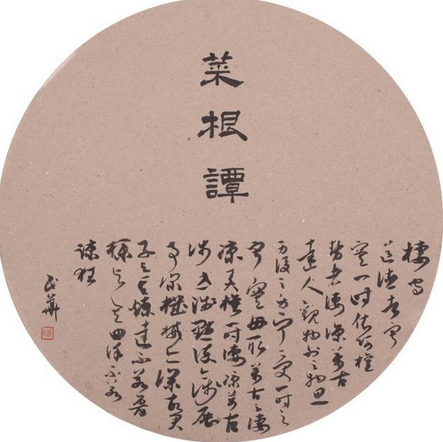 菜根譚
棲守
道德者寂
寞一時依阿權
勢者淒涼萬古
達人觀物外之物思
身後之身寧受一時之
寂寞毋取萬古之淒
涼 淒涼萬古
涉世淺點染亦淺歷
事深機械亦深故君
子與其練達不若魯
樸與其曲謹不若
疎狂